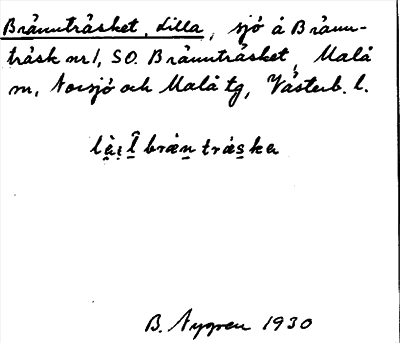 Brännträsket, lilla, sjö å Bränn-
träsk nr 1, SO. Brännträsket, Malå
sn, Norsjö och Malå tg, Västerb. l.
brän träska
B. Nygren 1930